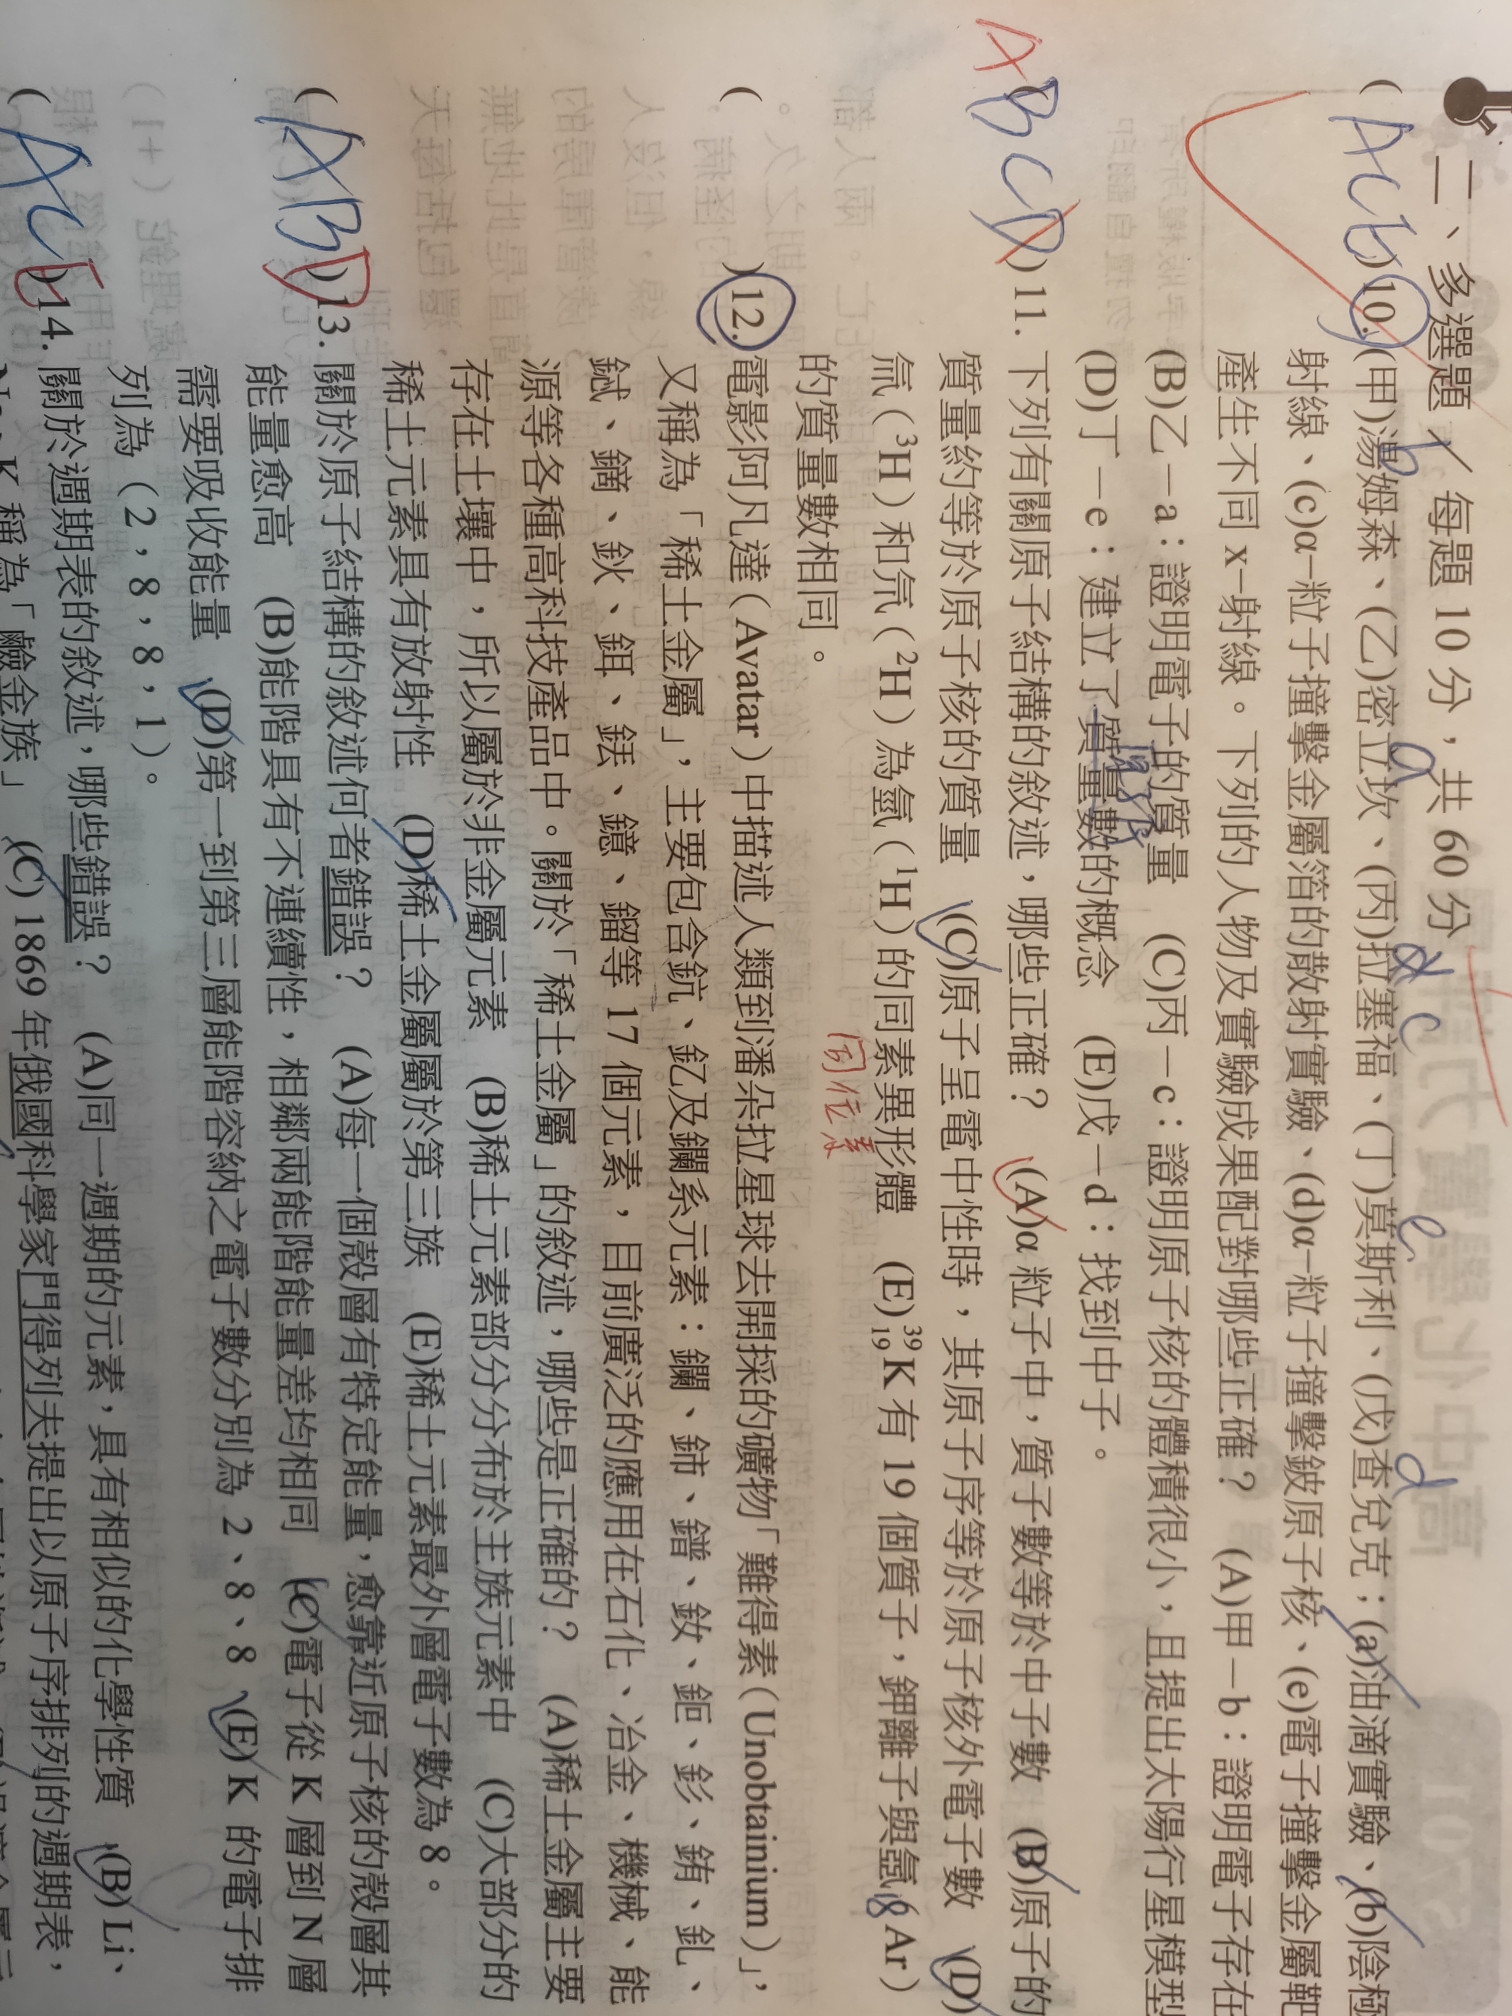 二、多選題／每題 10 分，共 60 分
( ACD )10. (甲)湯姆森、(乙)密立坎、(丙)拉塞福、(丁)莫斯利、(戊)查兌克；(a)油滴實驗、(b)陰極
b a d c e d
射線、(c)α–粒子撞擊金屬箔的散射實驗、(d)α–粒子撞擊鈹原子核、(e)電子撞擊金屬靶
產生不同 x–射線。下列的人物及實驗成果配對哪些正確？ (A)甲－b：證明電子存在
(B)乙－a：證明電子的質量 (C)丙－c：證明原子核的體積很小，且提出太陽行星模型
(D)丁－e：建立了質量數的概念 (E)戊－d：找到中子。
( ABCD )11. 下列有關原子結構的敘述，哪些正確？ (A)α 粒子中，質子數等於中子數 (B)原子的
質量約等於原子核的質量 (C)原子呈電中性時，其原子序等於原子核外電子數 (D)
氚（³H）和氘（²H）為氫（¹H）的同素異形體 (E)³⁹₁₉K 有 19 個質子，鉀離子與氬（₁₈Ar）
同位素
的質量數相同。
( )12. 電影阿凡達（Avatar）中描述人類到潘朵拉星球去開採的礦物「難得素（Unobtainium）」，
又稱為「稀土金屬」，主要包含鈧、釔及鑭系元素：鑭、鈰、鐠、釹、鉕、釤、銪、釓、
鋱、鏑、鈥、鉺、銩、鐿、鎦等 17 個元素，目前廣泛的應用在石化、冶金、機械、能
源等各種高科技產品中。關於「稀土金屬」的敘述，哪些是正確的？ (A)稀土金屬主要
存在土壤中，所以屬於非金屬元素 (B)稀土元素部分分布於主族元素中 (C)大部分的
稀土元素具有放射性 (D)稀土金屬屬於第三族 (E)稀土元素最外層電子數為 8。
( ABD )13. 關於原子結構的敘述何者錯誤？ (A)每一個殼層有特定能量，愈靠近原子核的殼層其
能量愈高 (B)能階具有不連續性，相鄰兩能階能量差均相同 (C)電子從 K 層到 N 層
需要吸收能量 (D)第一到第三層能階容納之電子數分別為 2、8、8 (E) K 的電子排
列為（2，8，8，1）。
( AC )14. 關於週期表的敘述，哪些錯誤？ (A)同一週期的元素，具有相似的化學性質 (B) Li、
K 稱為「鹼金族」 (C) 1869 年俄國科學家門得列夫提出以原子序排列的週期表，